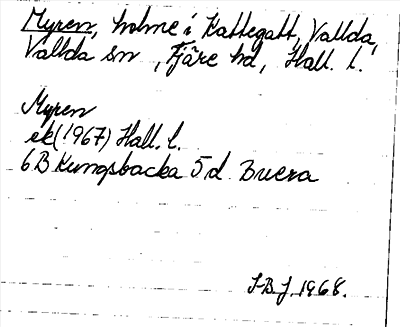 Myren, holme i Kattegatt, Vallda,
Vallda sn, Fjäre hd, Hall. l.
Myren
ek (1967) Hall. l.
6B Kungsbacka 5d Buera
S.B.J. 1968.